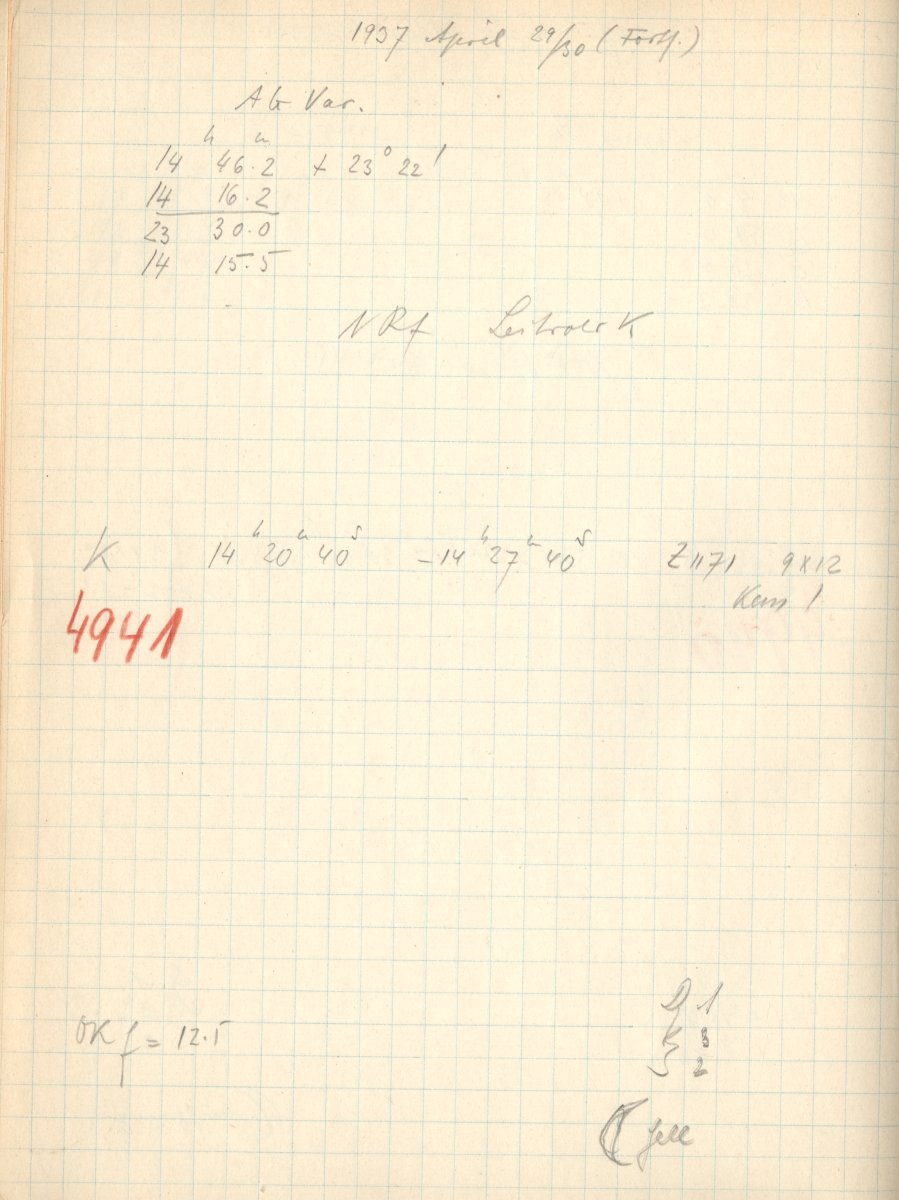 1937 April 29/30 (Forts.)
AG Var.
14ʰ 46ᵐ.2 + 23° 22'
14 16.2
23 30.0
14 15.5
N Rf Leitrohr K
K 14ʰ 20ᵐ 40ˢ – 14ʰ 27ᵐ 40ˢ Z 1171 9x12
4941 Kass 1
D 1
OK f = 12.5 3
S 2
hell